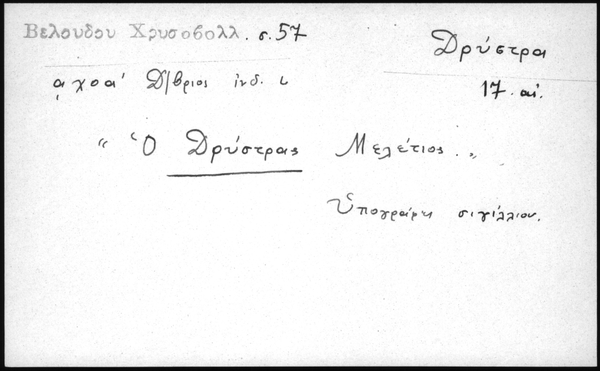 Βελουδου Χρυσοβολλ. σ. 57
Δρύστρα
͵αχοα' Δ/βριος ἰνδ. ι
17. αἰ.
“ Ὁ Δρύστρας Μελέτιος. „
Ὑπογράφει σιγίλλιον.